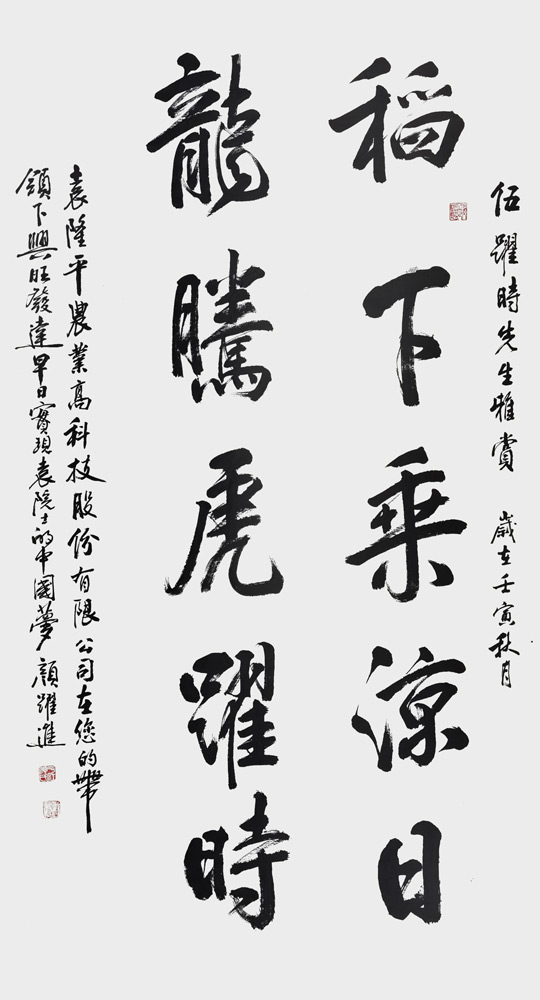 伍躍時先生雅賞 歲在壬寅秋月
稻下乘涼日
龍騰虎躍時
袁隆平農業高科技股份有限公司在您的帶
領下興旺發達早日實現袁院士的中國夢 顏躍進